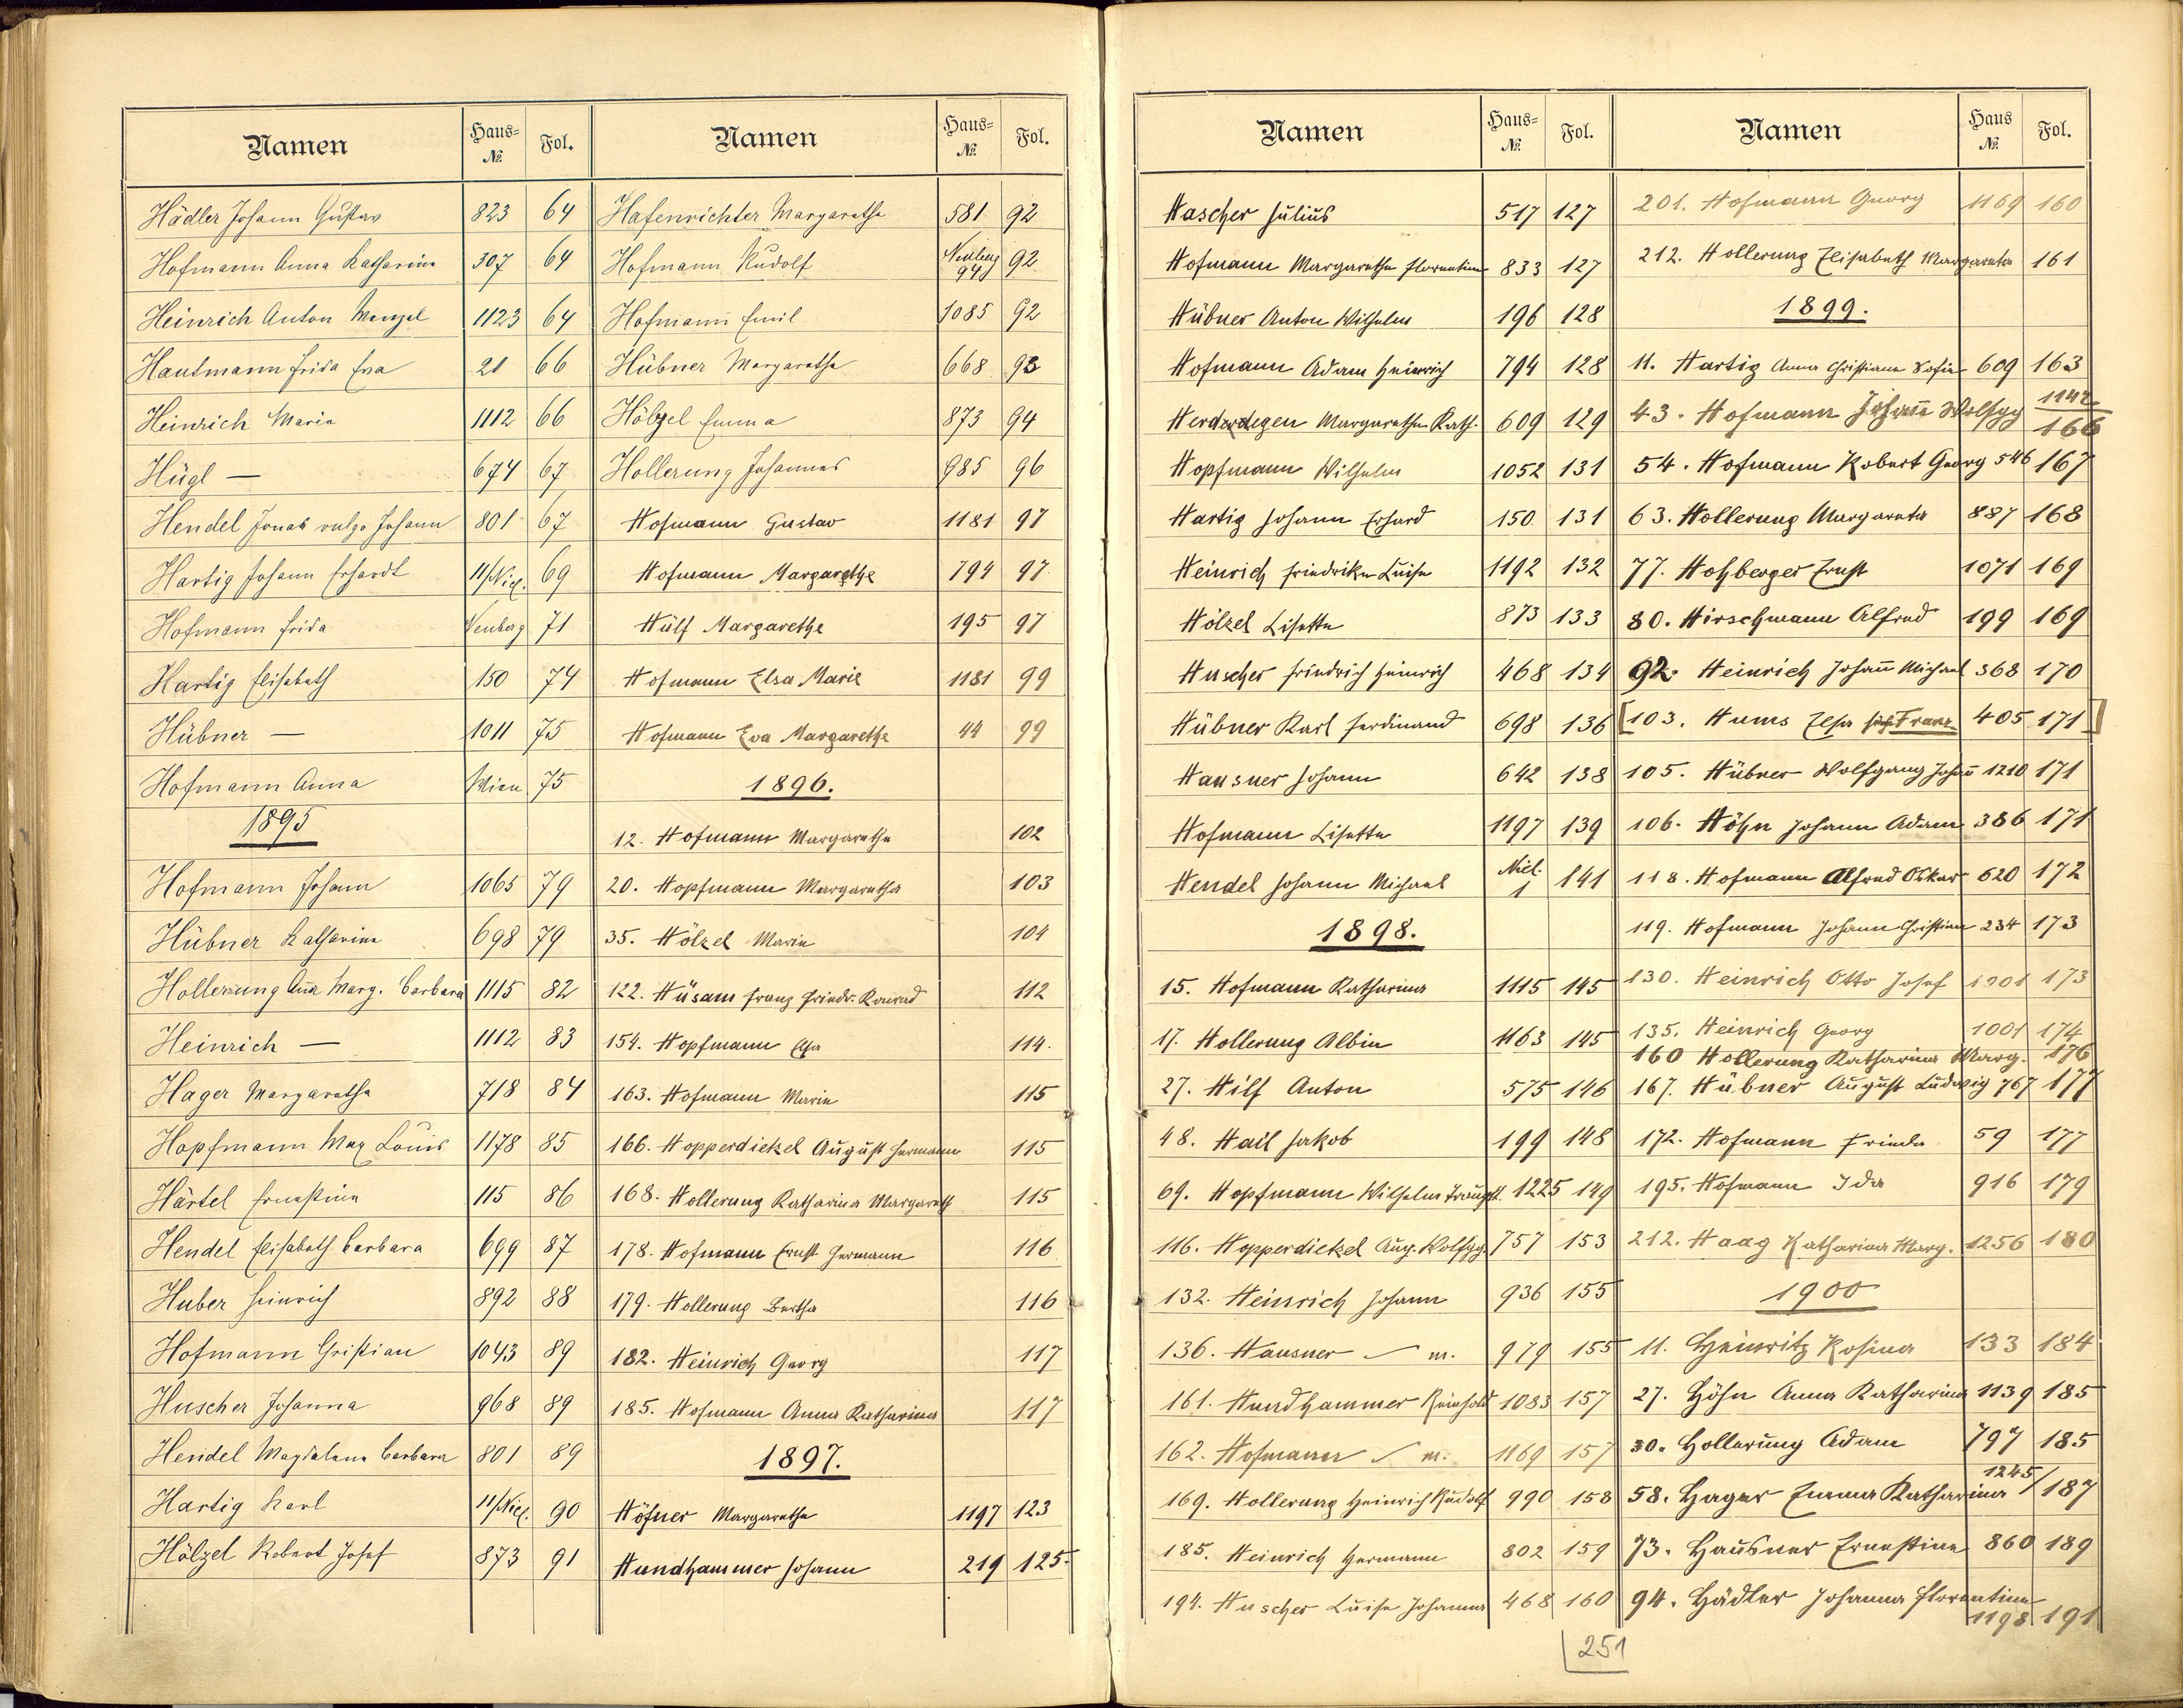 Namen Haus-№ Fol.
Hädler Johann Gustav 823 64
Hofmann Anna Katharina 307 64
Heinrich Anton Wenzel 1123 64
Hautmann Frida Eva 21 66
Heinrich Maria 1112 66
Hügl — 674 67
Hendel Jonas vulgo Johann 801 67
Hartig Johann Erhardt 11/Nied. 69
Hofmann Frida Neuberg 71
Hartig Elisabeth 150 74
Hübner — 1011 75
Hofmann Anna Wien 75
1895
Hofmann Johann 1065 79
Hübner Katharina 698 79
Hollerung Anna Marg. Barbara 1115 82
Heinrich — 1112 83
Hager Margaretha 718 84
Hopfmann Max Louis 1178 85
Härtel Ernestine 115 86
Hendel Elisabeth Barbara 699 87
Huber Heinrich 892 88
Hofmann Christian 1043 89
Huscher Johanna 968 89
Hendel Magdalena Barbara 801 89
Hartig Karl 11/Nied. 90
Hölzel Robert Josef 873 91
Namen Haus-№ Fol.
Hafenrichter Margaretha 581 92
Hofmann Rudolf Neuberg 94 92
Hofmann Emil 1085 92
Hübner Margaretha 668 93
Hölzel Emma 873 94
Hollerung Johannes 985 96
Hofmann Gustav 1181 97
Hofmann Margarethe 794 97
Hülf Margarethe 195 97
Hofmann Elsa Marie 1181 99
Hofmann Eva Margarethe 44 99
1896.
12. Hofmann Margaretha 102
20. Hopfmann Margaretha 103
35. Hölzel Marie 104
122. Hüsam Franz Friedr. Konrad 112
154. Hopfmann Elsa 114.
163. Hofmann Marie 115
166. Hopperdietzel August Hermann 115
168. Hollerung Katharina Margareth 115
178. Hofmann Ernst Hermann 116
179. Hollerung Bertha 116
182. Heinrich Georg 117
185. Hofmann Anna Katharina 117
1897.
Höfner Margaretha 1197 123
Hundhammer Johann 219 125.
Namen Haus-№ Fol.
Hascher Julius 517 127
Hofmann Margaretha Florentine 833 127
Hübner Anton Wilhelm 196 128
Hofmann Adam Heinrich 794 128
Herderdegen Margaretha Kath. 609 129
Hopfmann Wilhelm 1052 131
Hartig Johann Erhard 150 131
Heinrich Friedrike Luise 1192 132
Hölzel Lisette 873 133
Huscher Friedrich Heinrich 468 134
Hübner Karl Ferdinand 698 136
Hausner Johann 642 138
Hofmann Lisette 1197 139
Hendel Johann Michael Nied. 1 141
1898.
15. Hofmann Katharina 1115 145
17. Hollerung Albin 1163 145
27. Hilf Anton 575 146
48. Hail Jakob 199 148
69. Hopfmann Wilhelm Traugott 1225 149
116. Hopperdietzel Aug. Wolfgg. 757 153
132. Heinrich Johann 936 155
136. Hausner — m. 979 155
161. Hundhammer Reinhold 1083 157
162. Hofmann — m. 1169 157
169. Hollerung Heinrich Rudolf 990 158
185. Heinrich Hermann 802 159
194. Huscher Luise Johanna 468 160
Namen Haus № Fol.
201. Hofmann Georg 1169 160
212. Hollerung Elisabeth Margareta 161
1899.
11. Hartig Anna Christiane Sofie 609 163
43. Hofmann Johann Wolfgg 1142 166
54. Hofmann Robert Georg 546 167
63. Hollerung Margareta 887 168
77. Hohberger Ernst 1071 169
80. Hirschmann Alfred 199 169
92. Heinrich Johann Michael 368 170
[103. Hums Elsa Franz 405 171]
105. Hübner Wolfgang Johann 1210 171
106. Höhn Johann Adam 386 171
118. Hofmann Alfred Oskar 620 172
119. Hofmann Johann Christian 234 173
130. Heinrich Otto Josef 1001 173
135. Heinrich Georg 1001 174
160 Hollerung Katharina Marg. 176
167. Hübner August Ludwig 767 177
172. Hofmann Frieda 59 177
195. Hofmann Ida 916 179
212. Haag Katharina Marg. 1256 180
1900
11. Heinritz Rosina 133 184
27. Höhn Anna Katharina 1139 185
30. Hollerung Adam 797 185
58. Hager Emma Katharina 1245/187
73. Hausner Ernestine 860 189
94. Hädler Johanna Florentine 1198 191
251